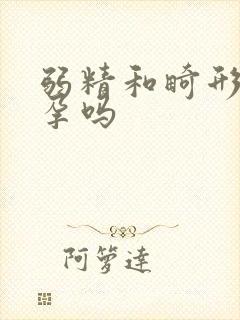 弱精和畸形
孕吗
阿箩達